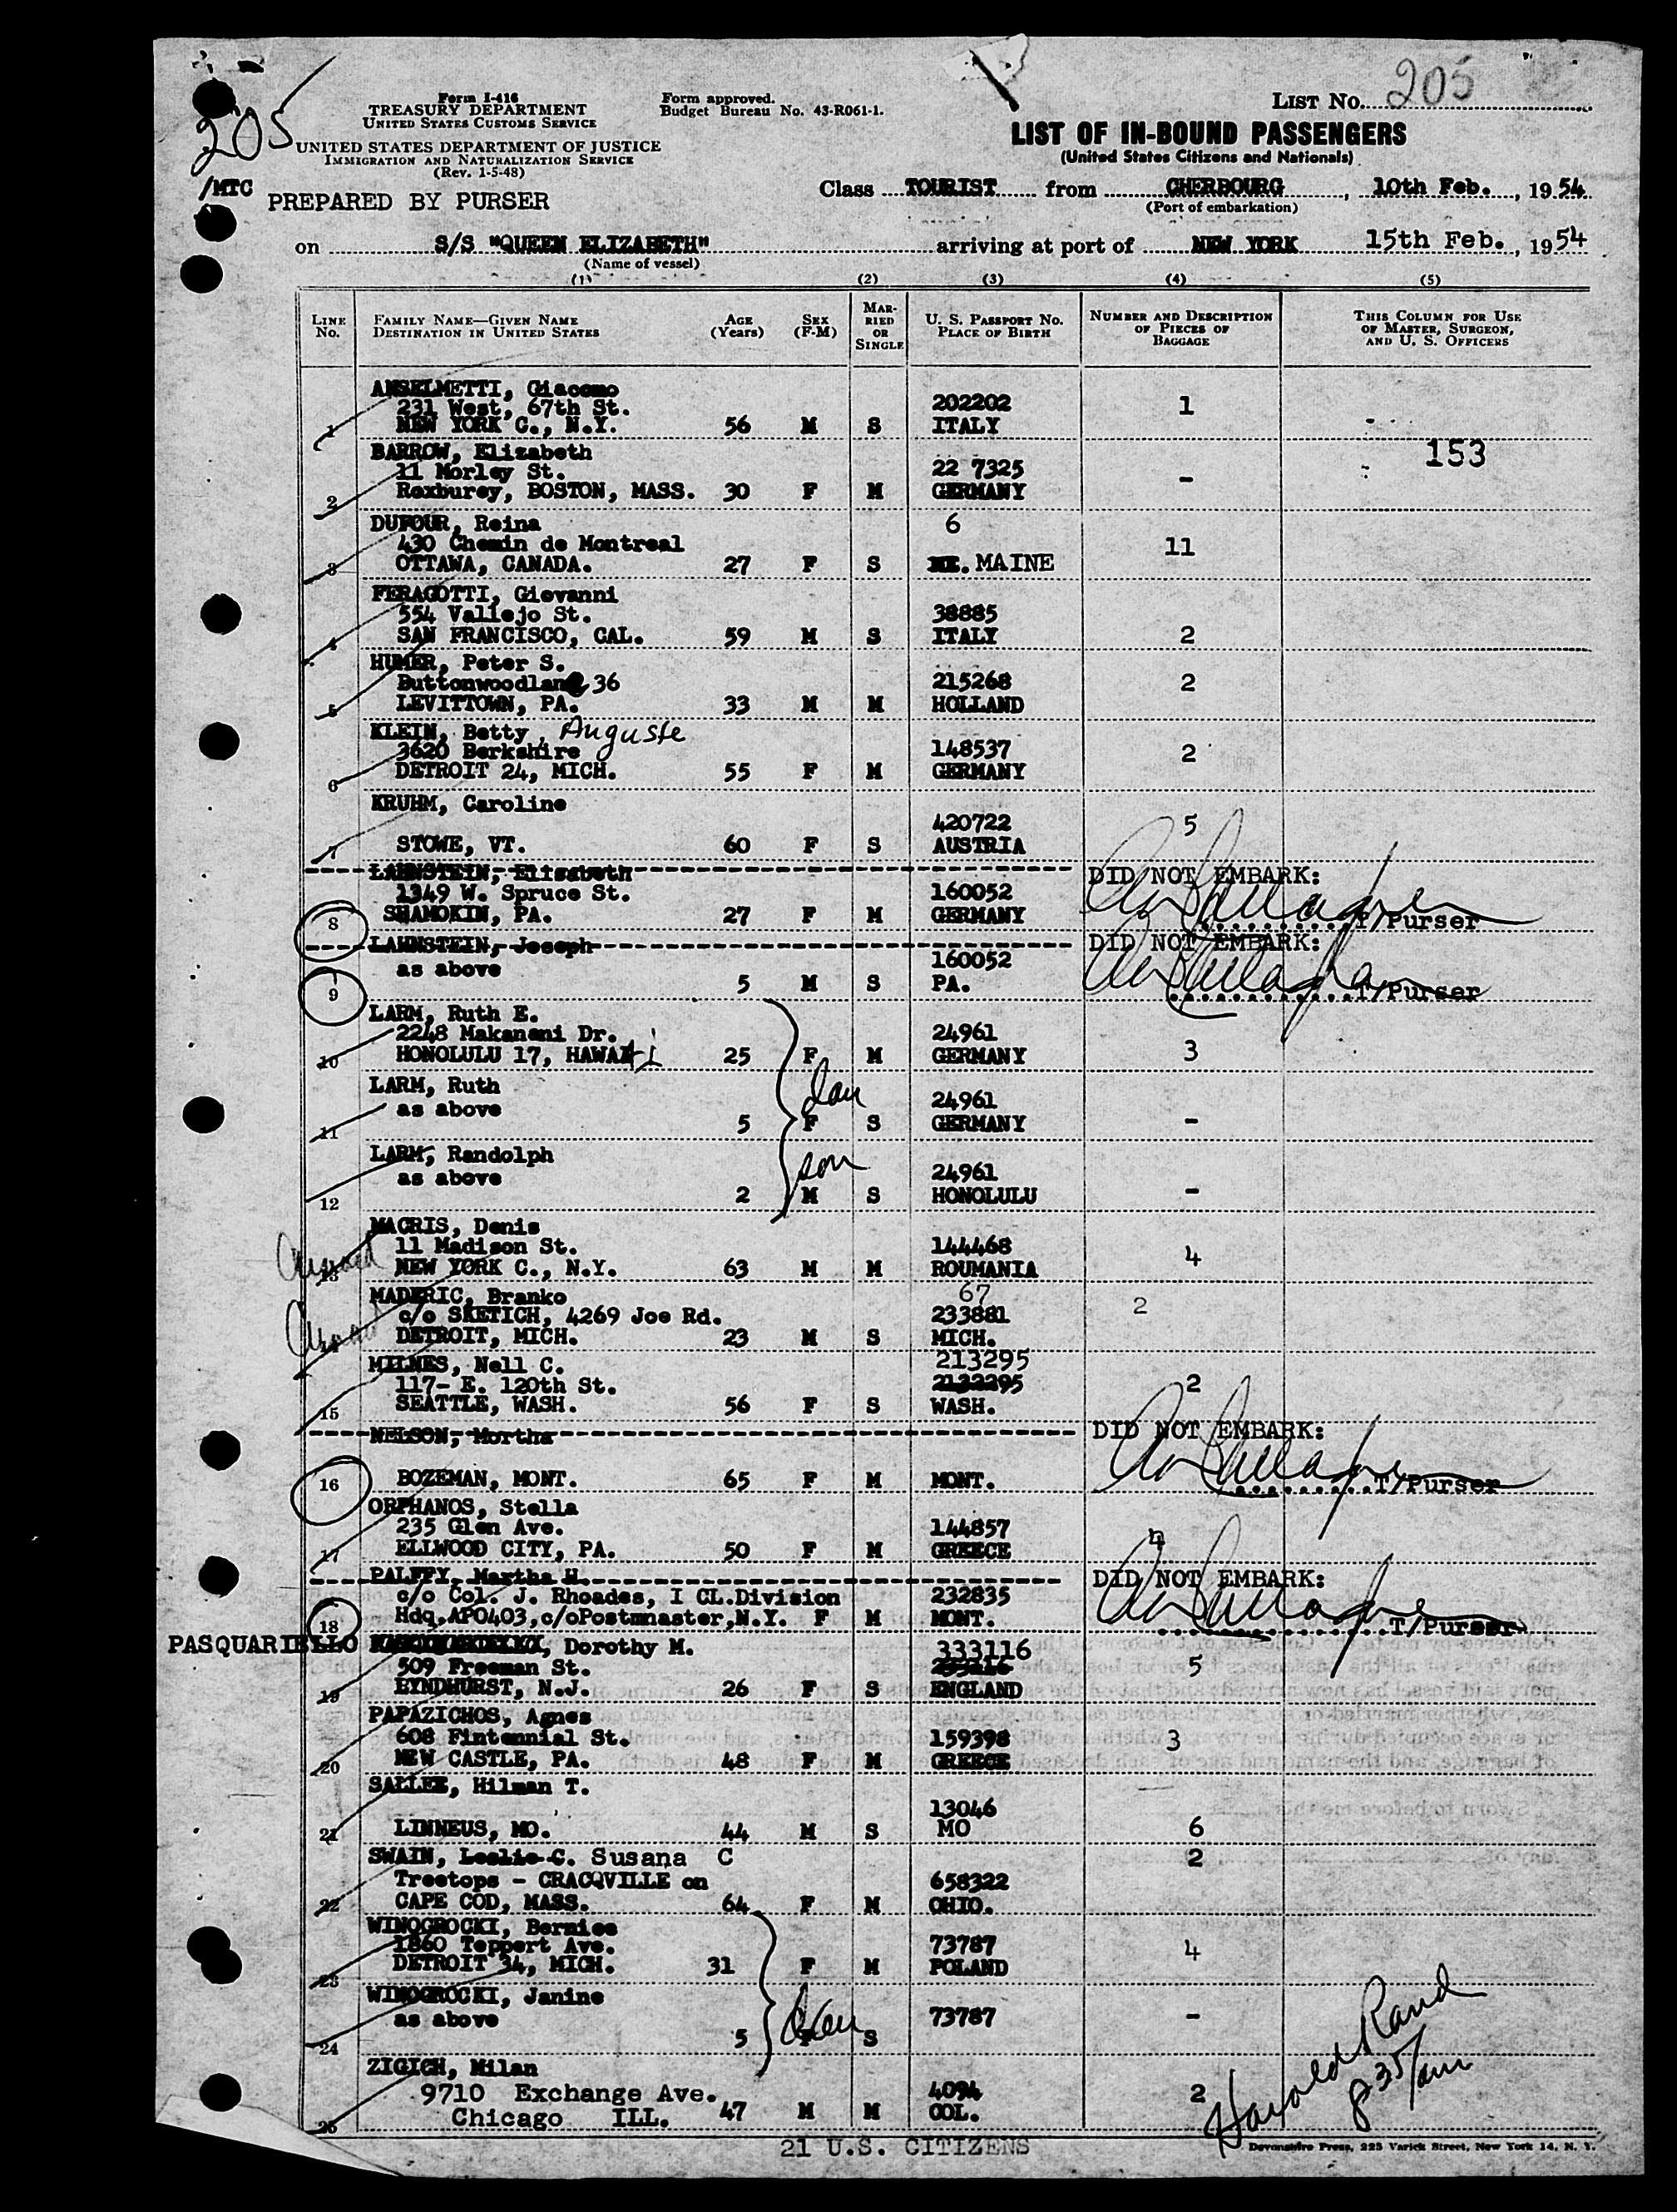 205
Form I-416
TREASURY DEPARTMENT
UNITED STATES CUSTOMS SERVICE
UNITED STATES DEPARTMENT OF JUSTICE
IMMIGRATION AND NATURALIZATION SERVICE
(Rev. 1-5-48)
Form approved.
Budget Bureau No. 43-R061-1.
LIST NO. 205
LIST OF IN-BOUND PASSENGERS
(United States Citizens and Nationals)
/MTC PREPARED BY PURSER
Class TOURIST from CHERBOURG, 10th Feb., 1954
(Port of embarkation)
on S/S "QUEEN ELIZABETH" arriving at port of NEW YORK 15th Feb., 1954
(Name of vessel)
(1) (2) (3) (4) (5)
LINE No. FAMILY NAME—GIVEN NAME DESTINATION IN UNITED STATES AGE (Years) SEX (F-M) MARRIED OR SINGLE U. S. PASSPORT NO. PLACE OF BIRTH NUMBER AND DESCRIPTION OF PIECES OF BAGGAGE THIS COLUMN FOR USE OF MASTER, SURGEON, AND U. S. OFFICERS
ANSELMETTI, Giacomo
231 West, 67th St. 202202 1
1 NEW YORK C., N.Y. 56 M S ITALY
BARROW, Elizabeth 153
11 Morley St. 22 7325 -
2 Roxburey, BOSTON, MASS. 30 F M GERMANY
DUFOUR, Reina 6
430 Chemin de Montreal 11
3 OTTAWA, CANADA. 27 F S MAINE
FERAGOTTI, Giovanni
554 Vallejo St. 38885
4 SAN FRANCISCO, CAL. 59 M S ITALY 2
HUMER, Peter S.
Buttonwoodlane 36 215268 2
5 LEVITTOWN, PA. 33 M M HOLLAND
KLEIN, Betty, Auguste
3620 Berkshire 148537 2
6 DETROIT 24, MICH. 55 F M GERMANY
KRUHM, Caroline
420722 5
7 STOWE, VT. 60 F S AUSTRIA
LAHNSTEIN, Elisabeth DID NOT EMBARK:
1349 W. Spruce St. 160052
8 SHAMOKIN, PA. 27 F M GERMANY T/Purser
LAHNSTEIN, Joseph DID NOT EMBARK:
as above 160052
9 5 M S PA. T/Purser
LARM, Ruth E.
2248 Makanani Dr. 24961
10 HONOLULU 17, HAWAii 25 F M GERMANY 3
LARM, Ruth dau
as above 24961
11 5 F S GERMANY -
LARM, Randolph son
as above 24961
12 2 M S HONOLULU -
MACRIS, Denis
11 Madison St. 144468 4
13 NEW YORK C., N.Y. 63 M M ROUMANIA
MADERIC, Branko 67
c/o SKETICH, 4269 Joe Rd. 233881 2
DETROIT, MICH. 23 M S MICH.
MILNES, Nell C. 213295
117- E. 120th St. 2132295 2
15 SEATTLE, WASH. 56 F S WASH.
NELSON, Mortha DID NOT EMBARK:
16 BOZEMAN, MONT. 65 F M MONT. T/Purser
ORPHANOS, Stella
235 Glen Ave. 144857 n
17 ELLWOOD CITY, PA. 50 F M GREECE
PALFFY, Martha H. DID NOT EMBARK:
c/o Col. J. Rhoades, I CL.Division 232835
18 Hdq.APO403,c/oPostmnaster,N.Y. F M MONT. T/Purser
PASQUARIELLO, Dorothy M. 333116
509 Freeman St. 5
19 EYNDHURST, N.J. 26 F S ENGLAND
PAPAZICHOS, Agnes
608 Fintennial St. 159398 3
20 NEW CASTLE, PA. 48 F M GREECE
SALLEE, Hilman T.
13046
21 LINNEUS, MO. 44 M S MO 6
SWAIN, Leslie C. Susana C 2
Treetops - CRACQVILLE on 658322
22 CAPE COD, MASS. 64 F M OHIO.
WINOGROCKI, Bernice
1860 Teppert Ave. 73787 4
23 DETROIT 34, MICH. 31 F M POLAND
WINOGROCKI, Janine
as above 73787 -
24 5 F dau S
ZIGICH, Milan
9710 Exchange Ave. 4094 2
25 Chicago ILL. 47 M M COL.
Harold Rand
8 35/am
21 U.S. CITIZENS
Devonshire Press, 225 Varick Street, New York 14, N. Y.